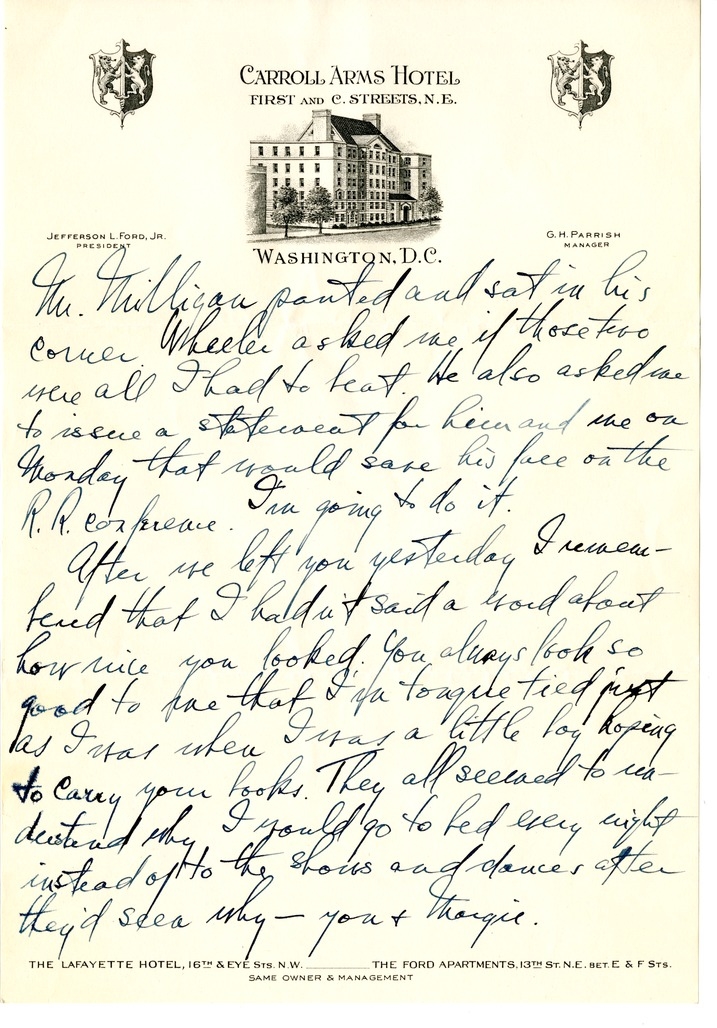 CARROLL ARMS HOTEL
FIRST AND C. STREETS, N.E.
JEFFERSON L. FORD, JR.
PRESIDENT
G. H. PARRISH
MANAGER
WASHINGTON, D.C.
Mr. Milligan panted and sat in his
corner. Wheeler asked me if those two
were all I had to beat. He also asked me
to issue a statement for him and me on
Monday that would save his face on the
R.R. conference. I'm going to do it.
After we left you yesterday I remem-
bered that I hadn't said a word about
how nice you looked. You always look so
good to me that I'm tongue tied just
as I was when I was a little boy hoping
to carry your books. They all seemed to un-
derstand why I would go to bed every night
instead of to the shows and dances after
they'd seen why — you & Margie.
THE LAFAYETTE HOTEL, 16TH & EYE STS. N.W. THE FORD APARTMENTS, 13TH ST. N.E. BET. E & F STS.
SAME OWNER & MANAGEMENT